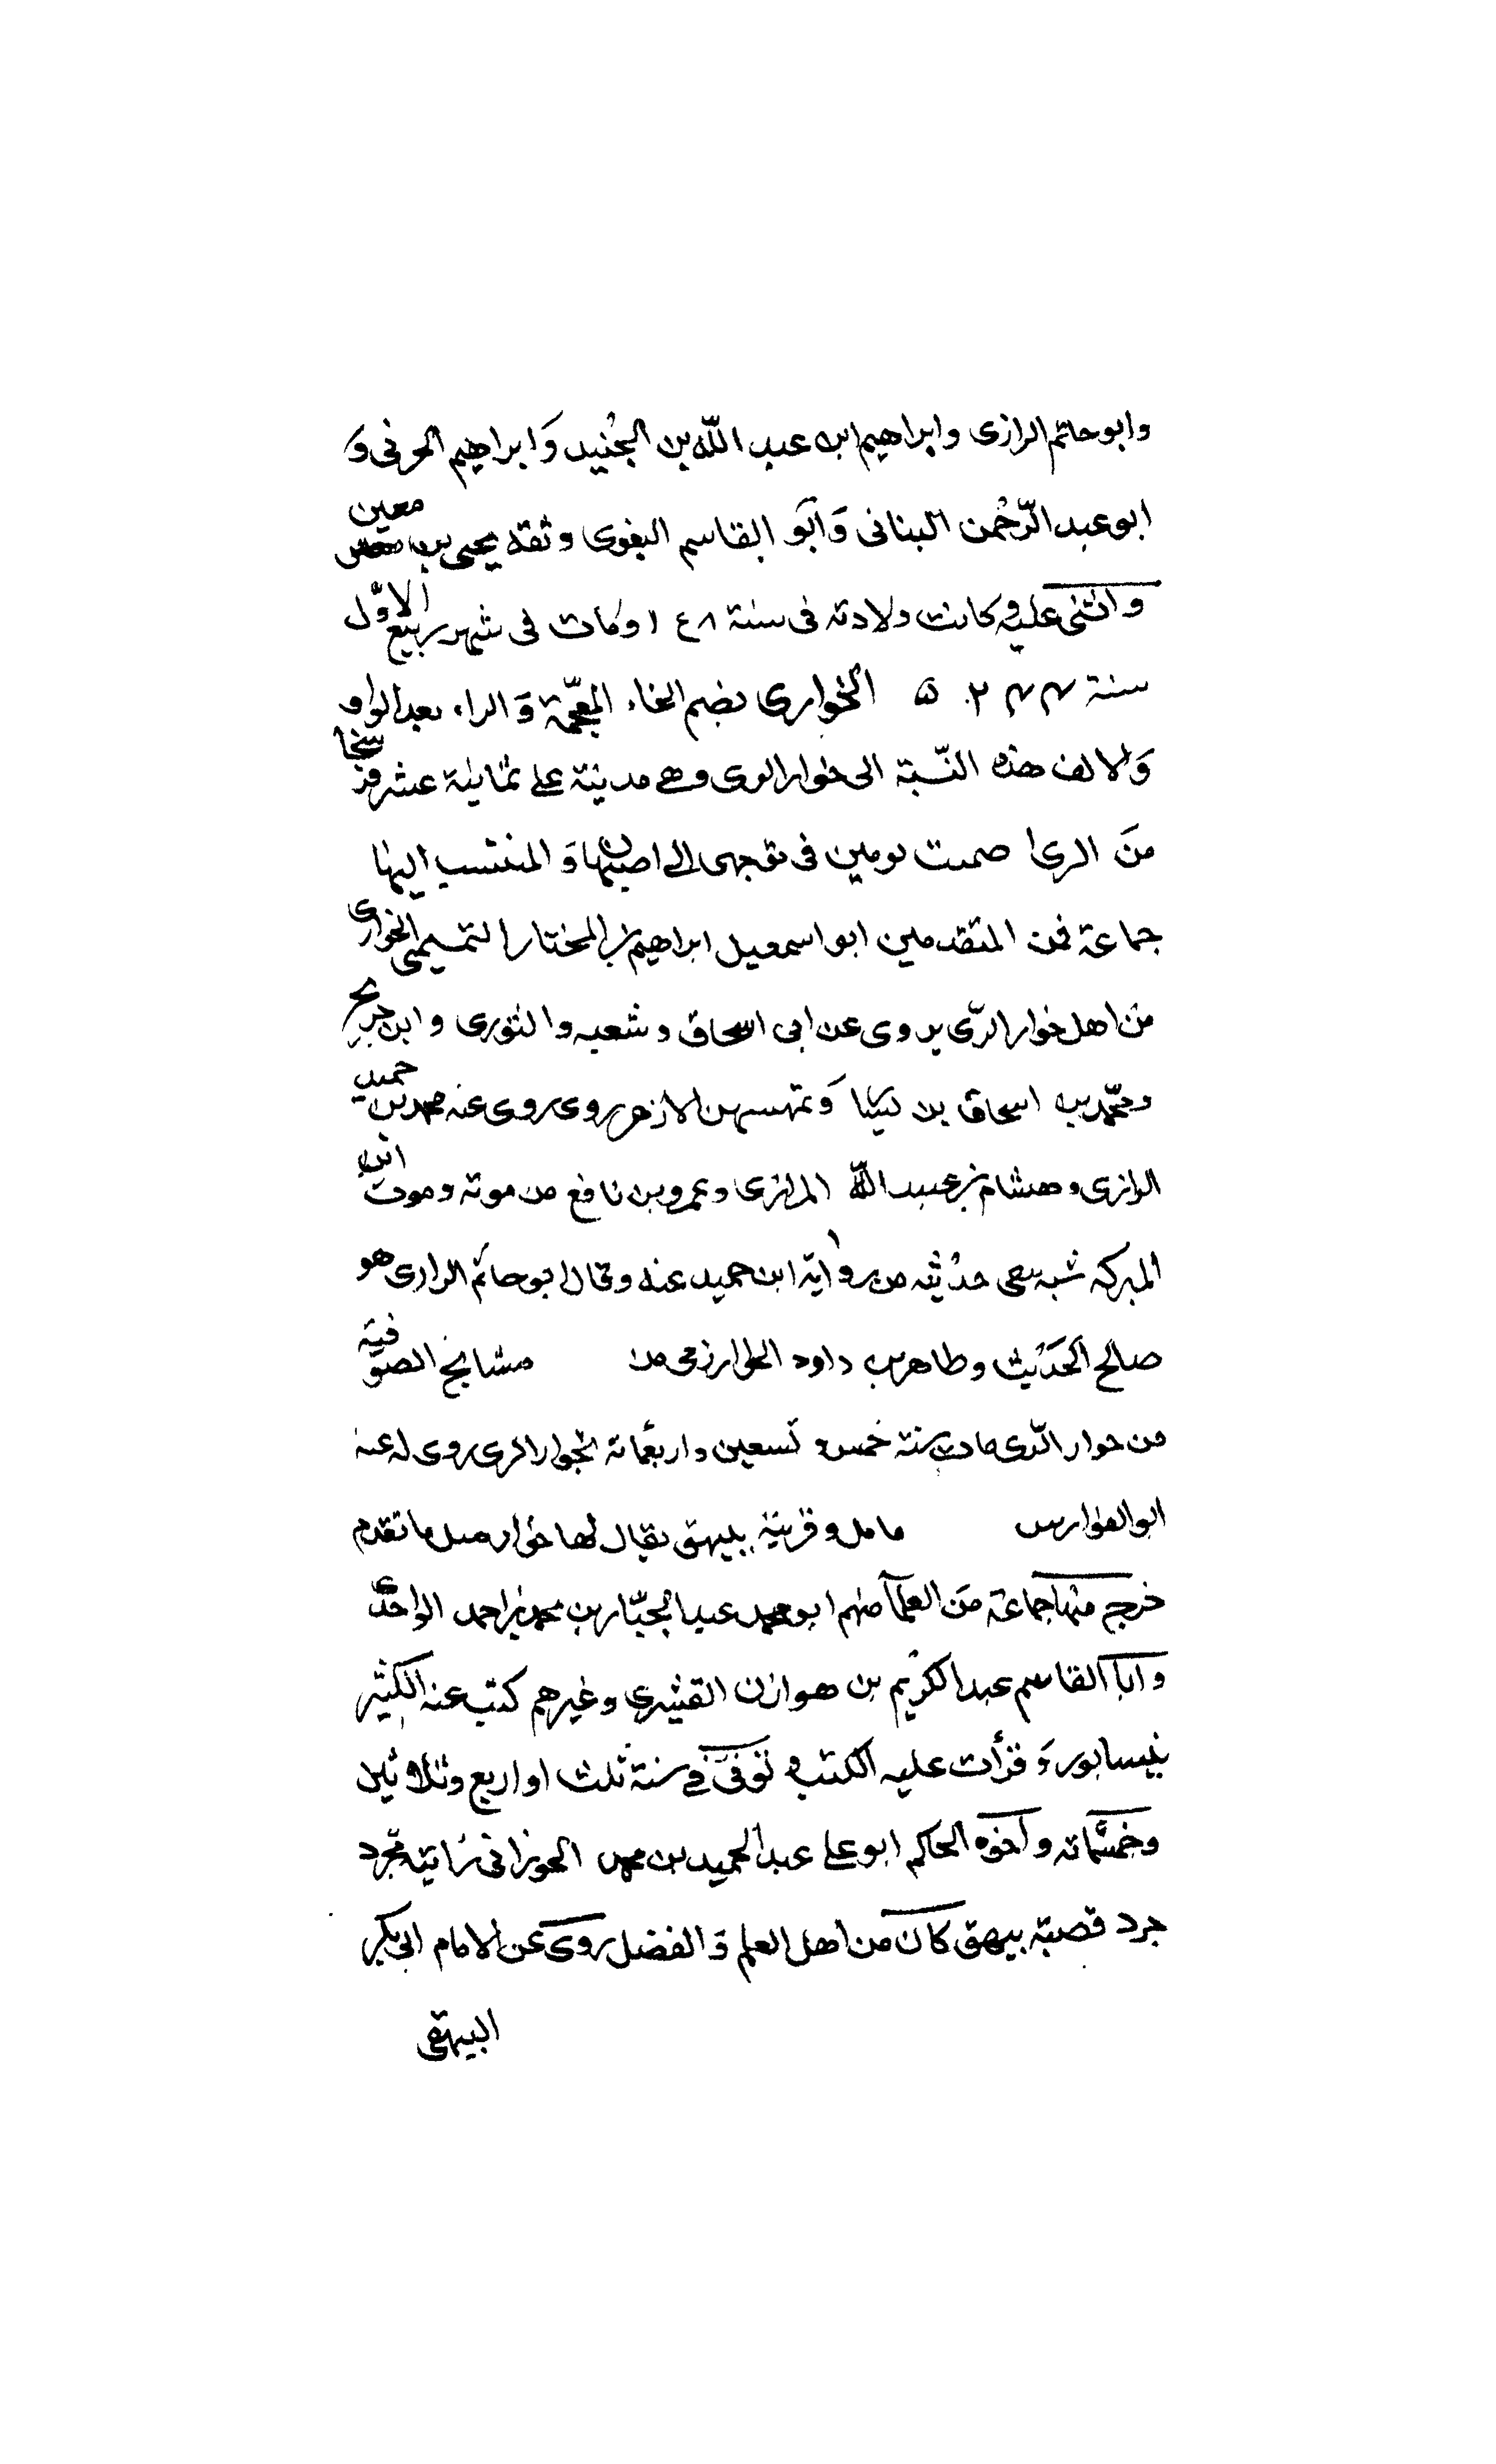 وابو حاتم الرازى وابراهيم ابن عبد اللّه بن الجُنيد وَابراهيم الحرفى وَ
ابو عبد الرّحمن البنانى وَابَو القاسم البغوى وثقه يحيى بن معين
واثنى عليه وكانت ولادته فى سنة ١٤٨ ومات فى شهر ربيع الاوّل
سنة الخُوارى بضم الخاء المعجّمة وَالراء بعد الواو
وَالالف هذه النّسبة الى خوار الرى وهى مدينة على ثمانية عشر فرسخا
مَن الرى صمت يومين فى توجهى الى اصبهان وَالمنتسب اليها
جماعة فمن المتقدمين ابو اسمعيل ابراهيم بن المختار التميمى الخوارى
من اهل خوار الرّى يروى عن ابى اسحاق وشعبه والثورى وابن جريح
ومحّمد بن اسحاق بن روى عنه محمد بن حميد
الرازى وهشام بن عبيد اللّه الرازى وعمرو بن نافع من موته وموت ابن
المبركه شبه حدُيثه من رواية ابن حميد عنه وقال ابو حاتم الرازى هو
صالح الحَدَيث وطاهر بن داود الخوارزمى من مشايخ الصّوفية
من حوار الرّى مات سنة خمس وتسعين واربعمائة بخوار الرى روى له عنه
ابو الفوارس مامل وقرية ببيهق يقال لها خوار مثل ما تقدم
خرج منها جماعة مَن العلمآ منهم ابو محمد عبد الجبّار بن محمد بن احمد الواحدّى
وابا القاسم عبد الكرُيم بن هوازن القشيرى وغيرهم كتب عنه الكثير
بنيسابور وَقرأت عليه الكتب وتوفى فى سنة ثلث او اربع وثلاثين
وخمسمّائه واخوه الحاكم ابو على عبد الحميد بن محمد الحوزانى
جرد قصبة بيهق كان من اهل العلم وَالفضل روى عن الامام ابى بكر
البيهقى